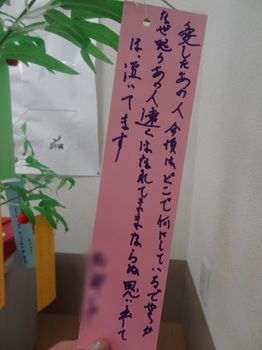 愛したあの人 今頃は、どこで何をしているでせうか
なぜ怒るあの人 遠くはなれてままならぬ思い平て
は泣いてます